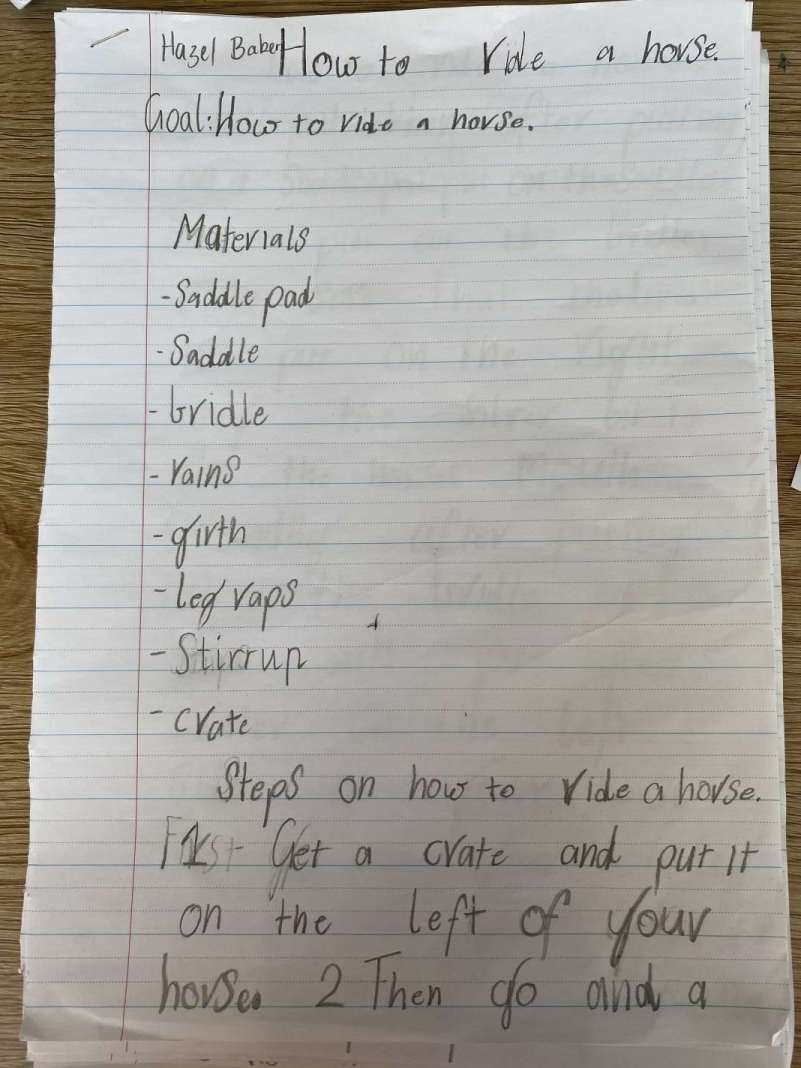 Hazel Baber How to ride a horse.
Goal: How to ride a horse.
Materials
- Saddle pad
- Saddle
- bridle
- rains
- girth
- leg raps
- Stirrup
- crate
Steps on how to ride a horse.
1 Get a crate and put it
on the left of your
horse. 2 Then go and a